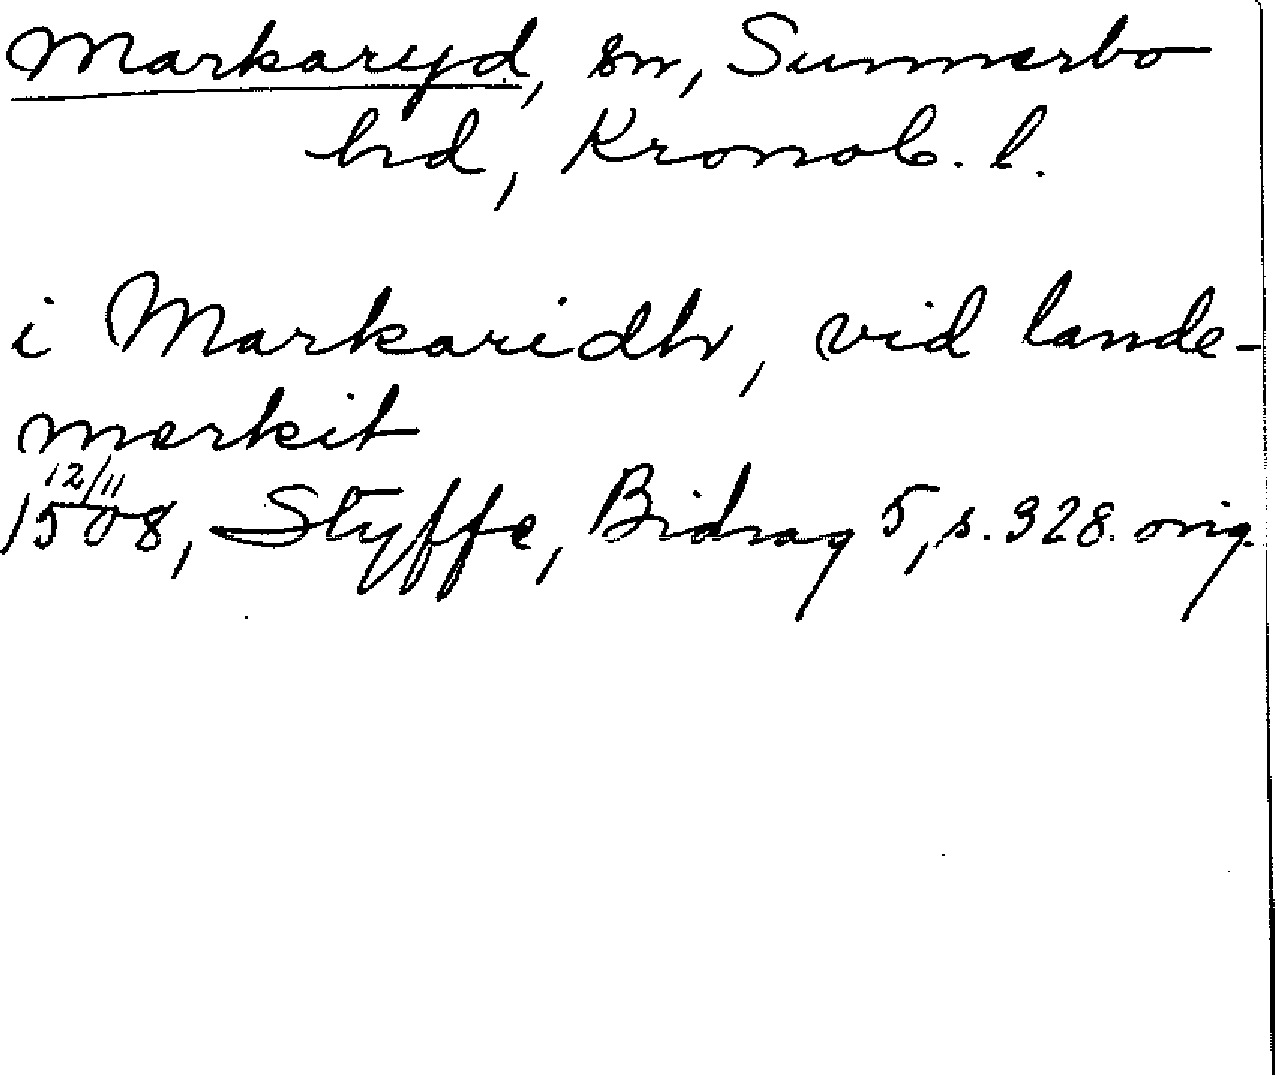 Markaryd, sn, Sunnerbo
hd, Kronob. l.
i Markaridh, vid lande-
merkit
12/11
1508, Styffe, Bidrag 5, s. 328. orig.